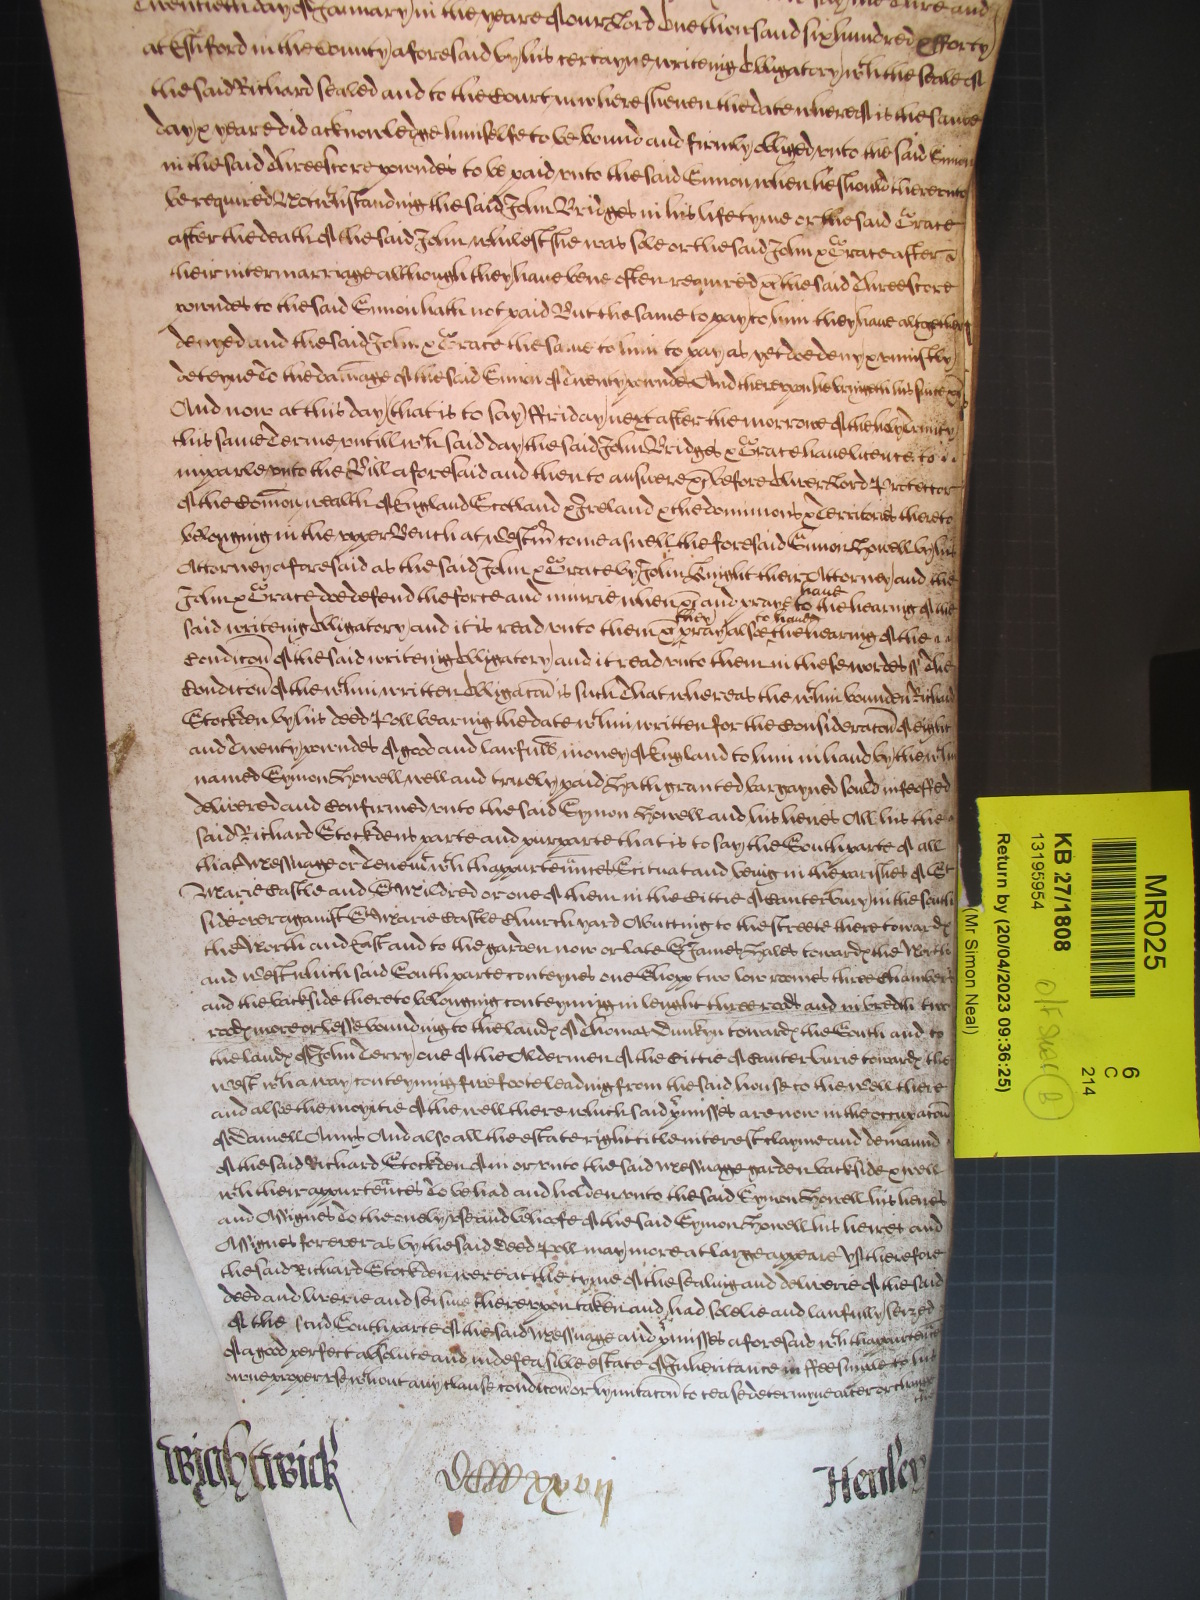 Twentieth day of January in the yeare of our Lord One thousand six hundred & fforty
at Ashford in the County aforesaid by his certayne writeing Obligatory wth the Seale of
the said Richard sealed and to the Court nowhere shewen the date whereof is the same
day & yeare did acknowledge himselfe to be bound and firmly obliged unto the said Simon
in the said threescore powndes to be paid unto the said Simon when he should thereunto
be required Notwthstanding the said John Bridges in his life tyme or the said Grace
after the death of the said John whilest she was sole or the said John & Grace after
their intermarriage although they have bene often required &c the said threescore
powndes to the said Simon hath not paid But the same to pay to him they have altogether
denyed and the said John & Grace the same to him to pay as yet doe deny & uniustly
deteyne To the damage of the said Simon of Twenty pownde And thereupon he bringeth his suite &c
And now at this day (that is to say) ffriday next after the morrowe of the holy Trinity
this same Terme untill wch said day the said John Bridges & Grace have licence to
imparle unto the Bill aforesaid and then to answere &c before Oliver Lord Protector
of the Comonwealth of England Scotland & Ireland & the dominions & Territories thereto
belonging in the upper Bench at Westmr come aswell the foresaid Simon Howell by his
Attorney aforesaid as the said John & Grace by John Knight their Attorney and the
John & Grace doe defend the force and iniurie when &c and pray to have the hearing of the
said writeing Obligatory and it is read unto them &c they pray alsoe to have the hearing of the
Condicon of the said writeing Obligatory and it read unto them in these wordes ss The
Condicon of the wthin written Obligacon is such That whereas the wthin bounden Richard
Stockden by his deed Poll bearing the date wthin written for the Consideracon of eight
and Twenty powndes of good and lawfull money of England to him in hand by the wthin
named Symon Howell well and truely paid Hath granted bargayned sould infeoffed
delivered and Confirmed unto the said Symon Howell and his heires All his the
said Richard Stockdens parte and purparte that is to say the South parte of all
that Messuage or Tenemt wth thappurtennces Scituat and being in the parishes of St
Marie Castle and St Mildred or one of them in the Cittie of Canterbury in the south
side over against St Marie Castle Church yard Abutting to the streete there toward&
the North and East and to the garden now or late Sr James Hales toward& the North
and West which said South parte conteynes one Shopp two low roomes three Chambers
and the backside thereto belonging conteyning in lenght three rodd& and in bredth two
rodd& more or lesse bounding to the land& of Thomas Dunkyn toward& the South and to
the land& of John Terry one of the Aldermen of the Cittie of Canterburie toward& the
West wth a way conteyning five foote leading from the said house to the Well there
and alsoe the moyitie of the well there which said pmisses are now in the occupacon
of Daniell Anns And also all the estate right title interest clayme and demaund
of the said Richard Stockden of in or unto the said Messuage garden backside & well
wth their appurtennces To be had and holden unto the said Symon Howell his heires
and Assignes To the onely use and behoofe of the said Symon Howell his heires and
Assignes for ever as by the said Deed Poll may more at large appeare Yf therefore
the said Richard Stockden were at the tyme of the sealing and deliverie of the said
deed and liverie and seisine thereupon taken and had solelie and lawfully seized
of the said South parte of the said Messuage and pmisses aforesaid wth thappurtences
of a good perfect absolute and indefeasible estate of Inheritance in ffee simple to his
owne proper use without any clause condicon or lymitacon to cease determyne alter or change
the
Wightwick
Henley
MR025
6
C
214
KB 27/1808
13195954
Return by (20/04/2023 09:36:25)
(Mr Simon Neal)